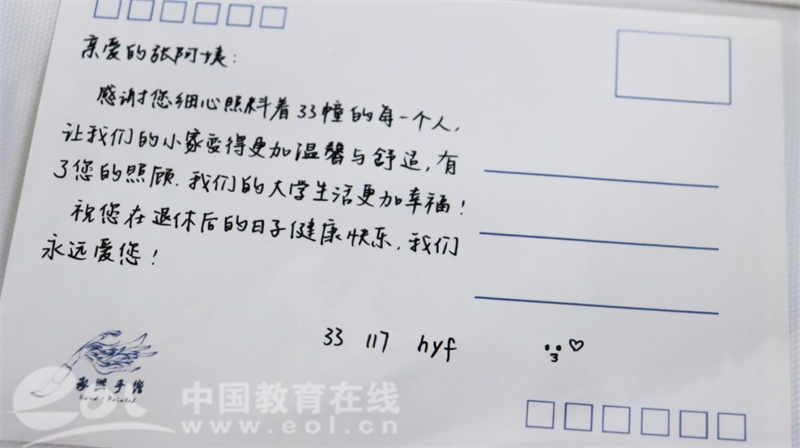 亲爱的张阿姨：
感谢您细心照料着33幢的每一个人，
让我们的小家变得更加温馨与舒适，有
了您的照顾，我们的大学生活更加幸福！
祝您在退休后的日子健康快乐，我们
永远爱您！
33 117 hyf
手绘
Hand · Painted
中国教育在线
www.eol.cn